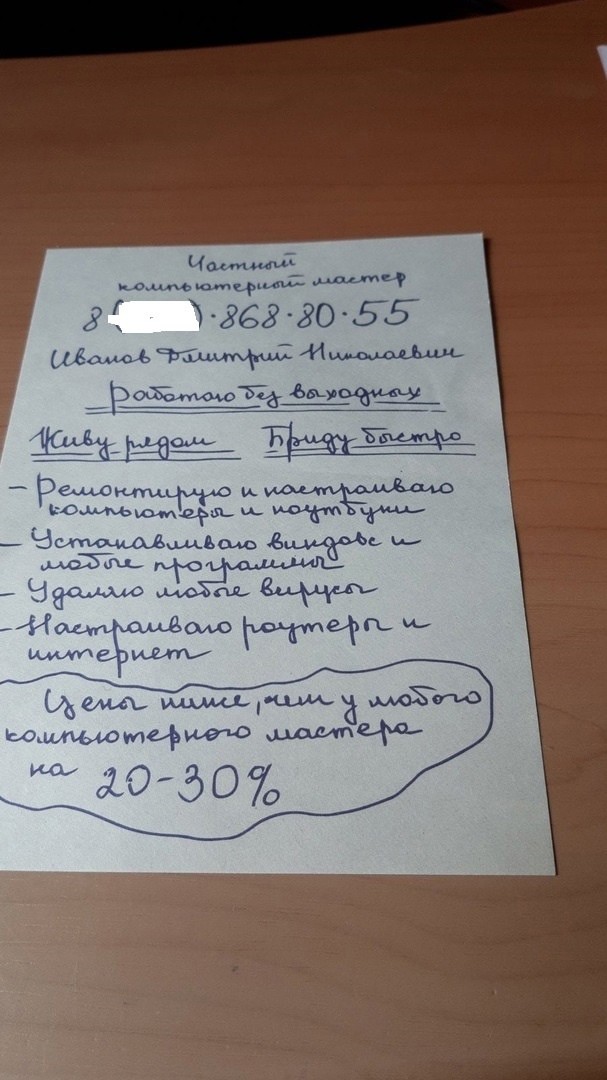 Частный
компьютерный мастер
8 ( ) · 868 · 80 · 55
Иванов Дмитрий Николаевич
Работаю без выходных
Живу рядом Приду быстро
- Ремонтирую и настраиваю
компьютеры и ноутбуки
- Устанавливаю виндовс и
любые программы
- Удаляю любые вирусы
- Настраиваю роутеры и
интернет
Цены ниже, чем у любого
компьютерного мастера
на 20-30%